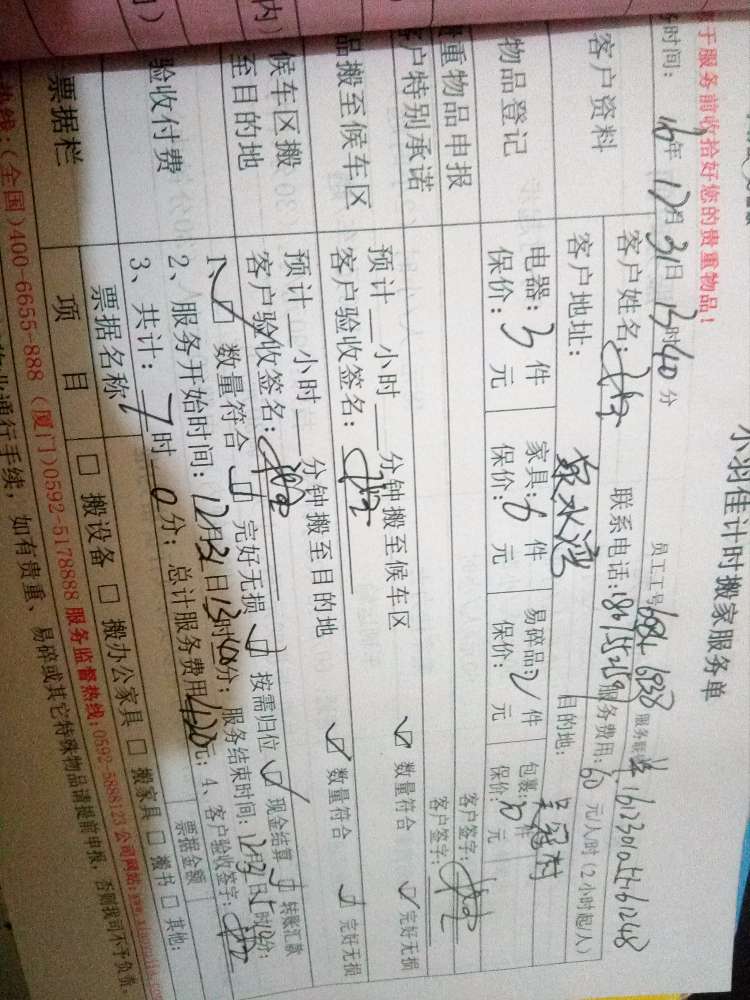 小羽佳计时搬家服务单
于服务前收拾好您的贵重物品!
员工工号 服务联单
时间: 16年12月31日13时40分
客户资料
客户姓名: 联系电话: 服务费用:60元/人时(2小时起/人)
客户地址: 泉水湾 目的地: 吴冠村
物品登记
电器:3件 家具:6件 易碎品:2件 包裹:10件
保价: 元 保价: 元 保价: 元 保价: 元
重物品申报 客户签字:
客户特别承诺 客户签字:
品搬至候车区
预计__小时__分钟搬至候车区 ☑ 数量符合 ☑ 完好无损
客户验收签名:
候车区搬至目的地
预计__小时__分钟搬至目的地 ☑ 数量符合 ☑ 完好无损
客户验收签名:
验收付费
1、☑ 数量符合 ☑ 完好无损 ☑ 按需归位 ☑ 现金结算 ☐ 转账汇款
2、服务开始时间:12月31日13时40分; 服务结束时间:12月31日
3、共计:7时0分; 总计服务费用:420元; 4、客户验收签字:
票据栏
票据名称 票据金额
项目 □ 搬设备 □ 搬办公家具 □ 搬家具 □ 搬书 □ 其他:
热线:(全国)400-6655-888 (厦门)0592-5178888 服务监督热线:0592-5888123 公司网站:
通行手续,如有贵重、易碎或其它特殊物品请提前申报,否则我司不予负责。